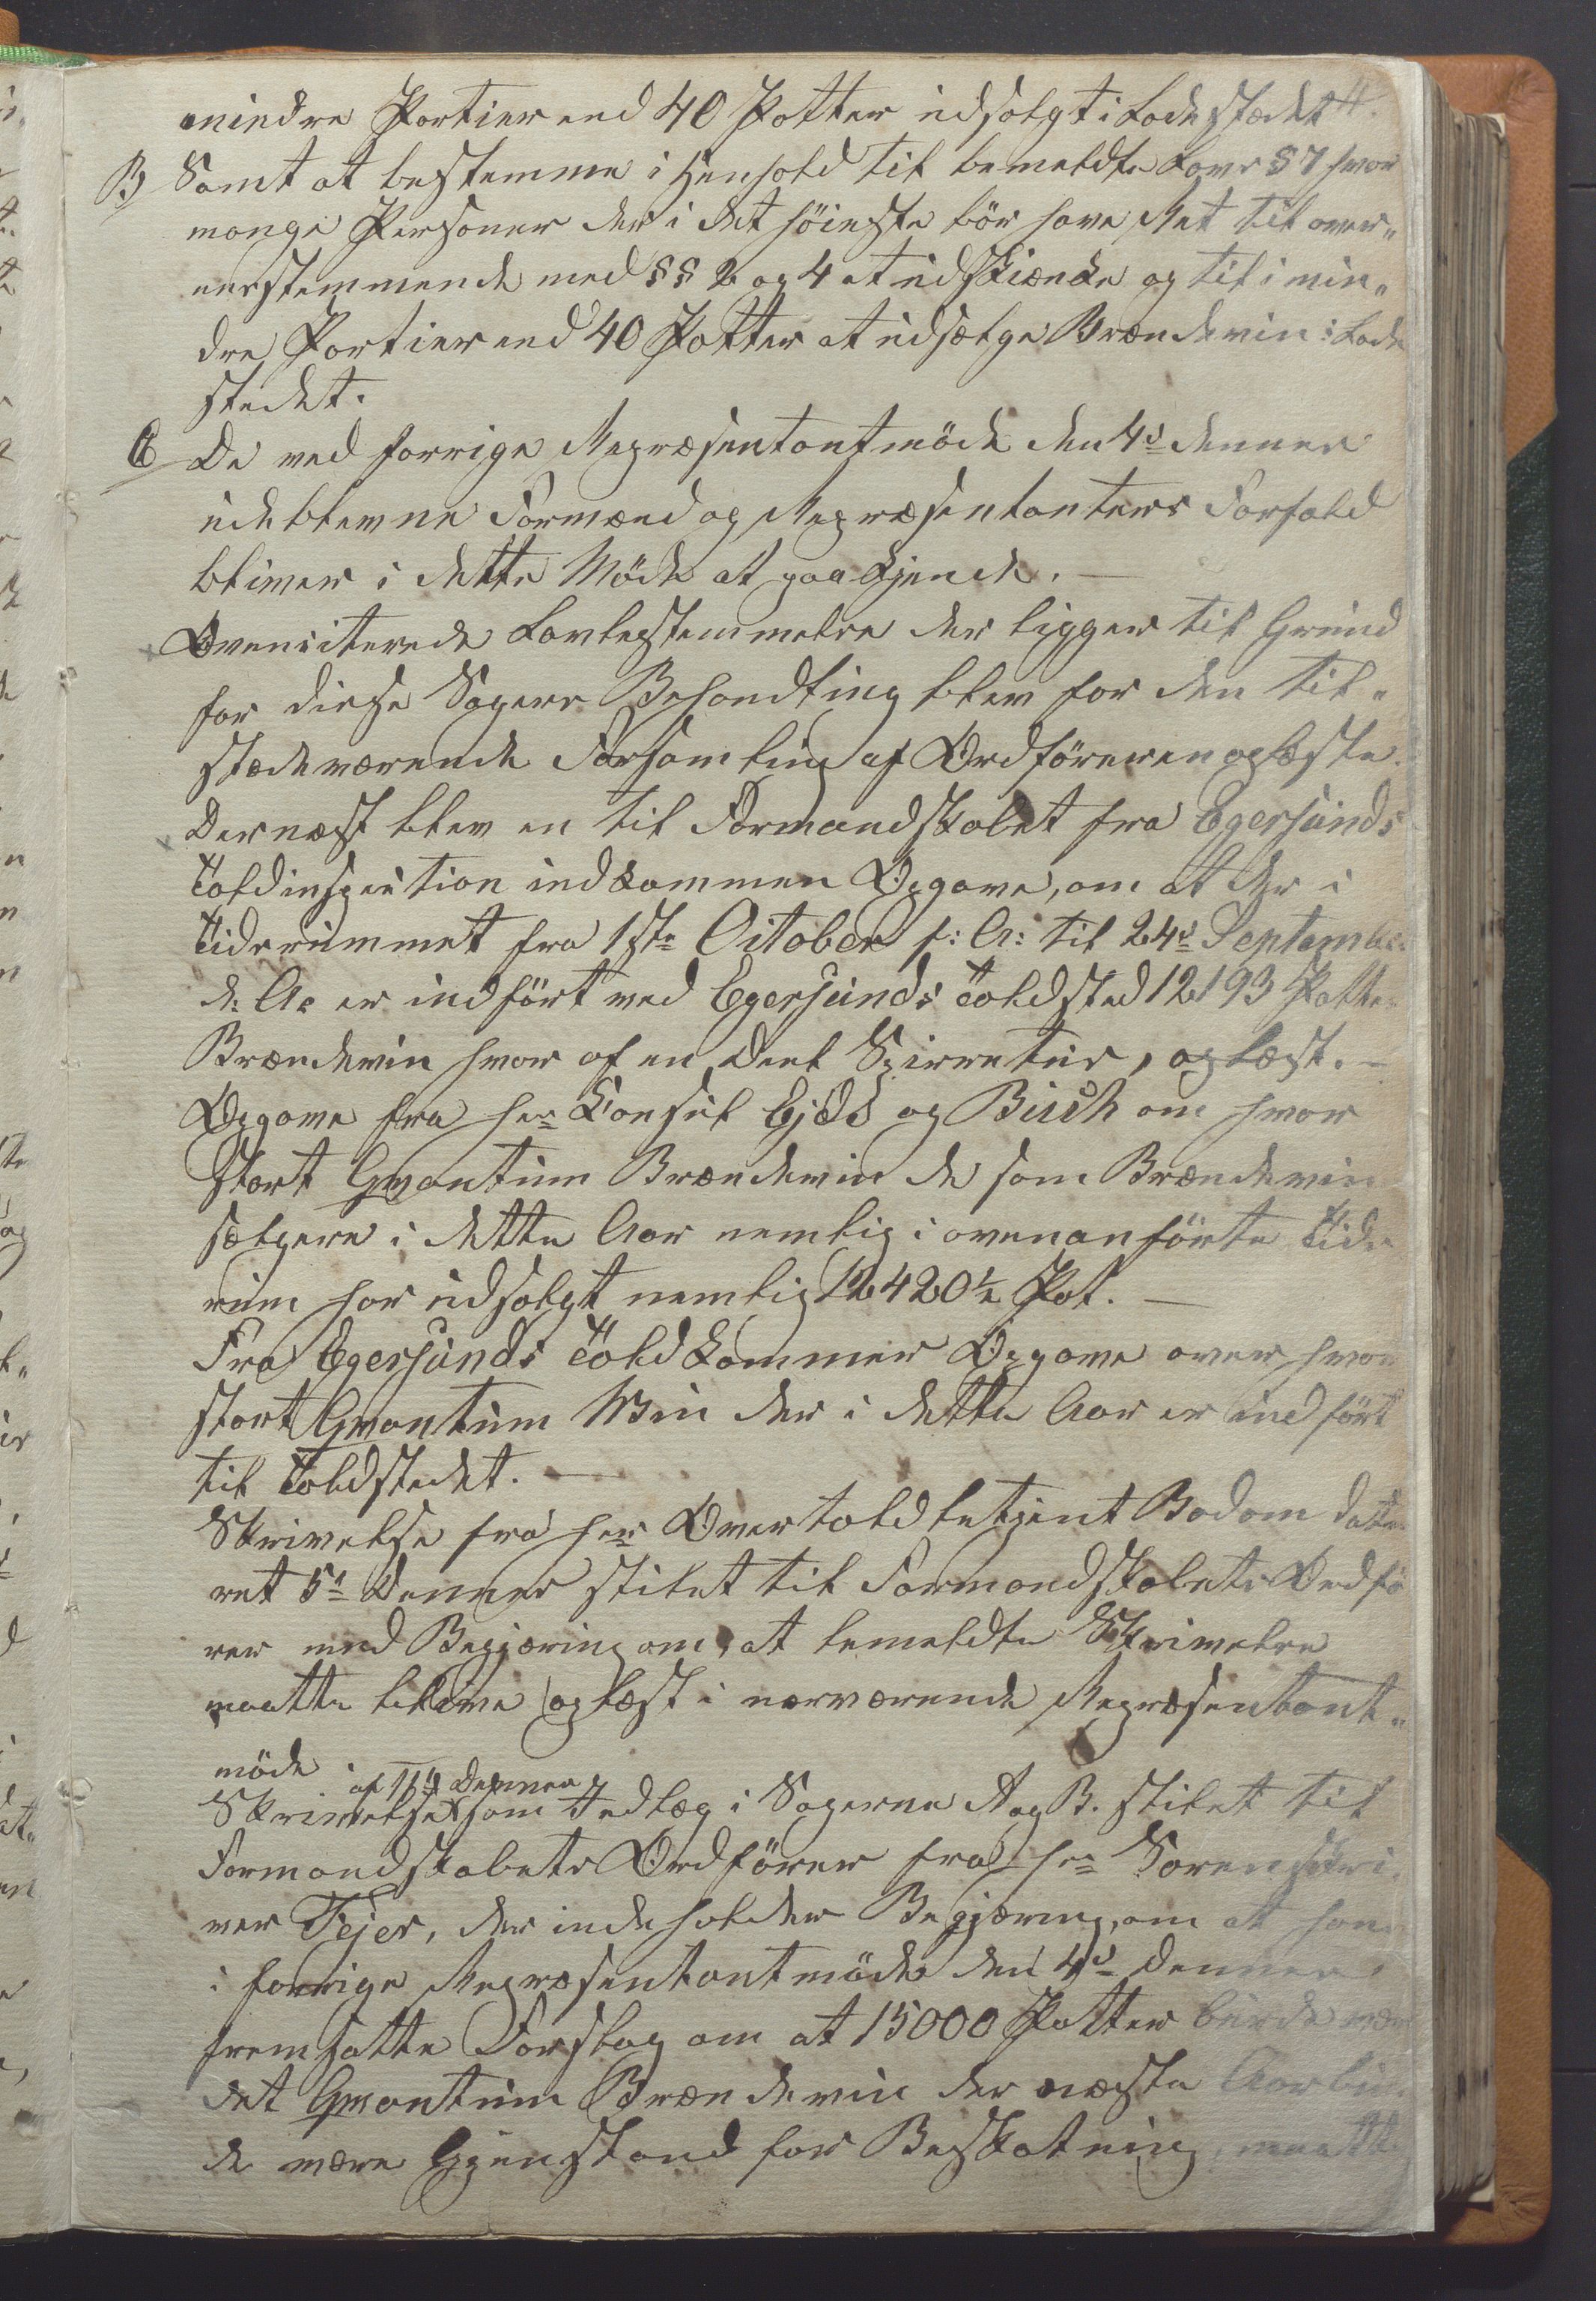 mindre Partier end 40 Potter udsolgt i Ladestædet 4.
B Samt at bestemme i Henhold til bemeldte Lovs § 7 hvor
mange Personer der i det höieste bör have Ret til over„
eensstemmende med §§ 2 og 4 at udskiænke og til i min„
dre Partier end 40 Potter at udsælge Brændeviin i Lade
stedet.
C De ved forrige Repræsentantmöde den 4d dennes
udeblevne Formænd og Repræsentanters Forfald
bliver i dette Möde at paakjende. —
Ovenciterede Lovbestemmelse der ligger til Grund
for disse Sagers Behandling blev for den til„
stædeværende Forsamling af Ordföreren oplæste.
Dernæst blev en til Formandskabet fra Egersunds
Toldinspection indkommen Opgave, om at der i
Tidsrummet fra 1ste October f: A: til 24d September
d. A. er indfört ved Egersunds Toldsted 12193 Potter
Brændeviin hvor af en Deel Spirretus, oplæst. —
Opgave fra Hr Consul Ejdt og Buch om hvor
Stort Qvantum Brændeviin de som Brændeviin
sælgere i dette Aar nemlig i ovenanförte Tids
rum har udsolgt nemlig 12420½ Pot. —
Fra Egersunds Toldkammer Opgave over hvor
stort Qvantum Viin der i dette Aar er indfört
til Toldstedet. —
Skrivelse fra Hr Overtoldbetjent Bodom date
ret 5t Dennes stilet til Formandskabets Ordfö
rer med Begjæring om, at bemeldte Skrivelse
maatte blive oplæst i nærværende Repræsentant„
möde
af 11t Dennes
Skrivelse som Indlæg i Sagerne A og B. stilet til
Formandskabets Ordförer fra Hr Sorenskri
ver Fejer, der indeholder Begjæring, om at hans
i forrige Repræsentantmöde den 4d Dennes
fremsatte Forslag om at 15000 Potter burde være
det Qvantum Brændeviin der næste Aar bur
de være Gjenstand for Beskatning, maatte